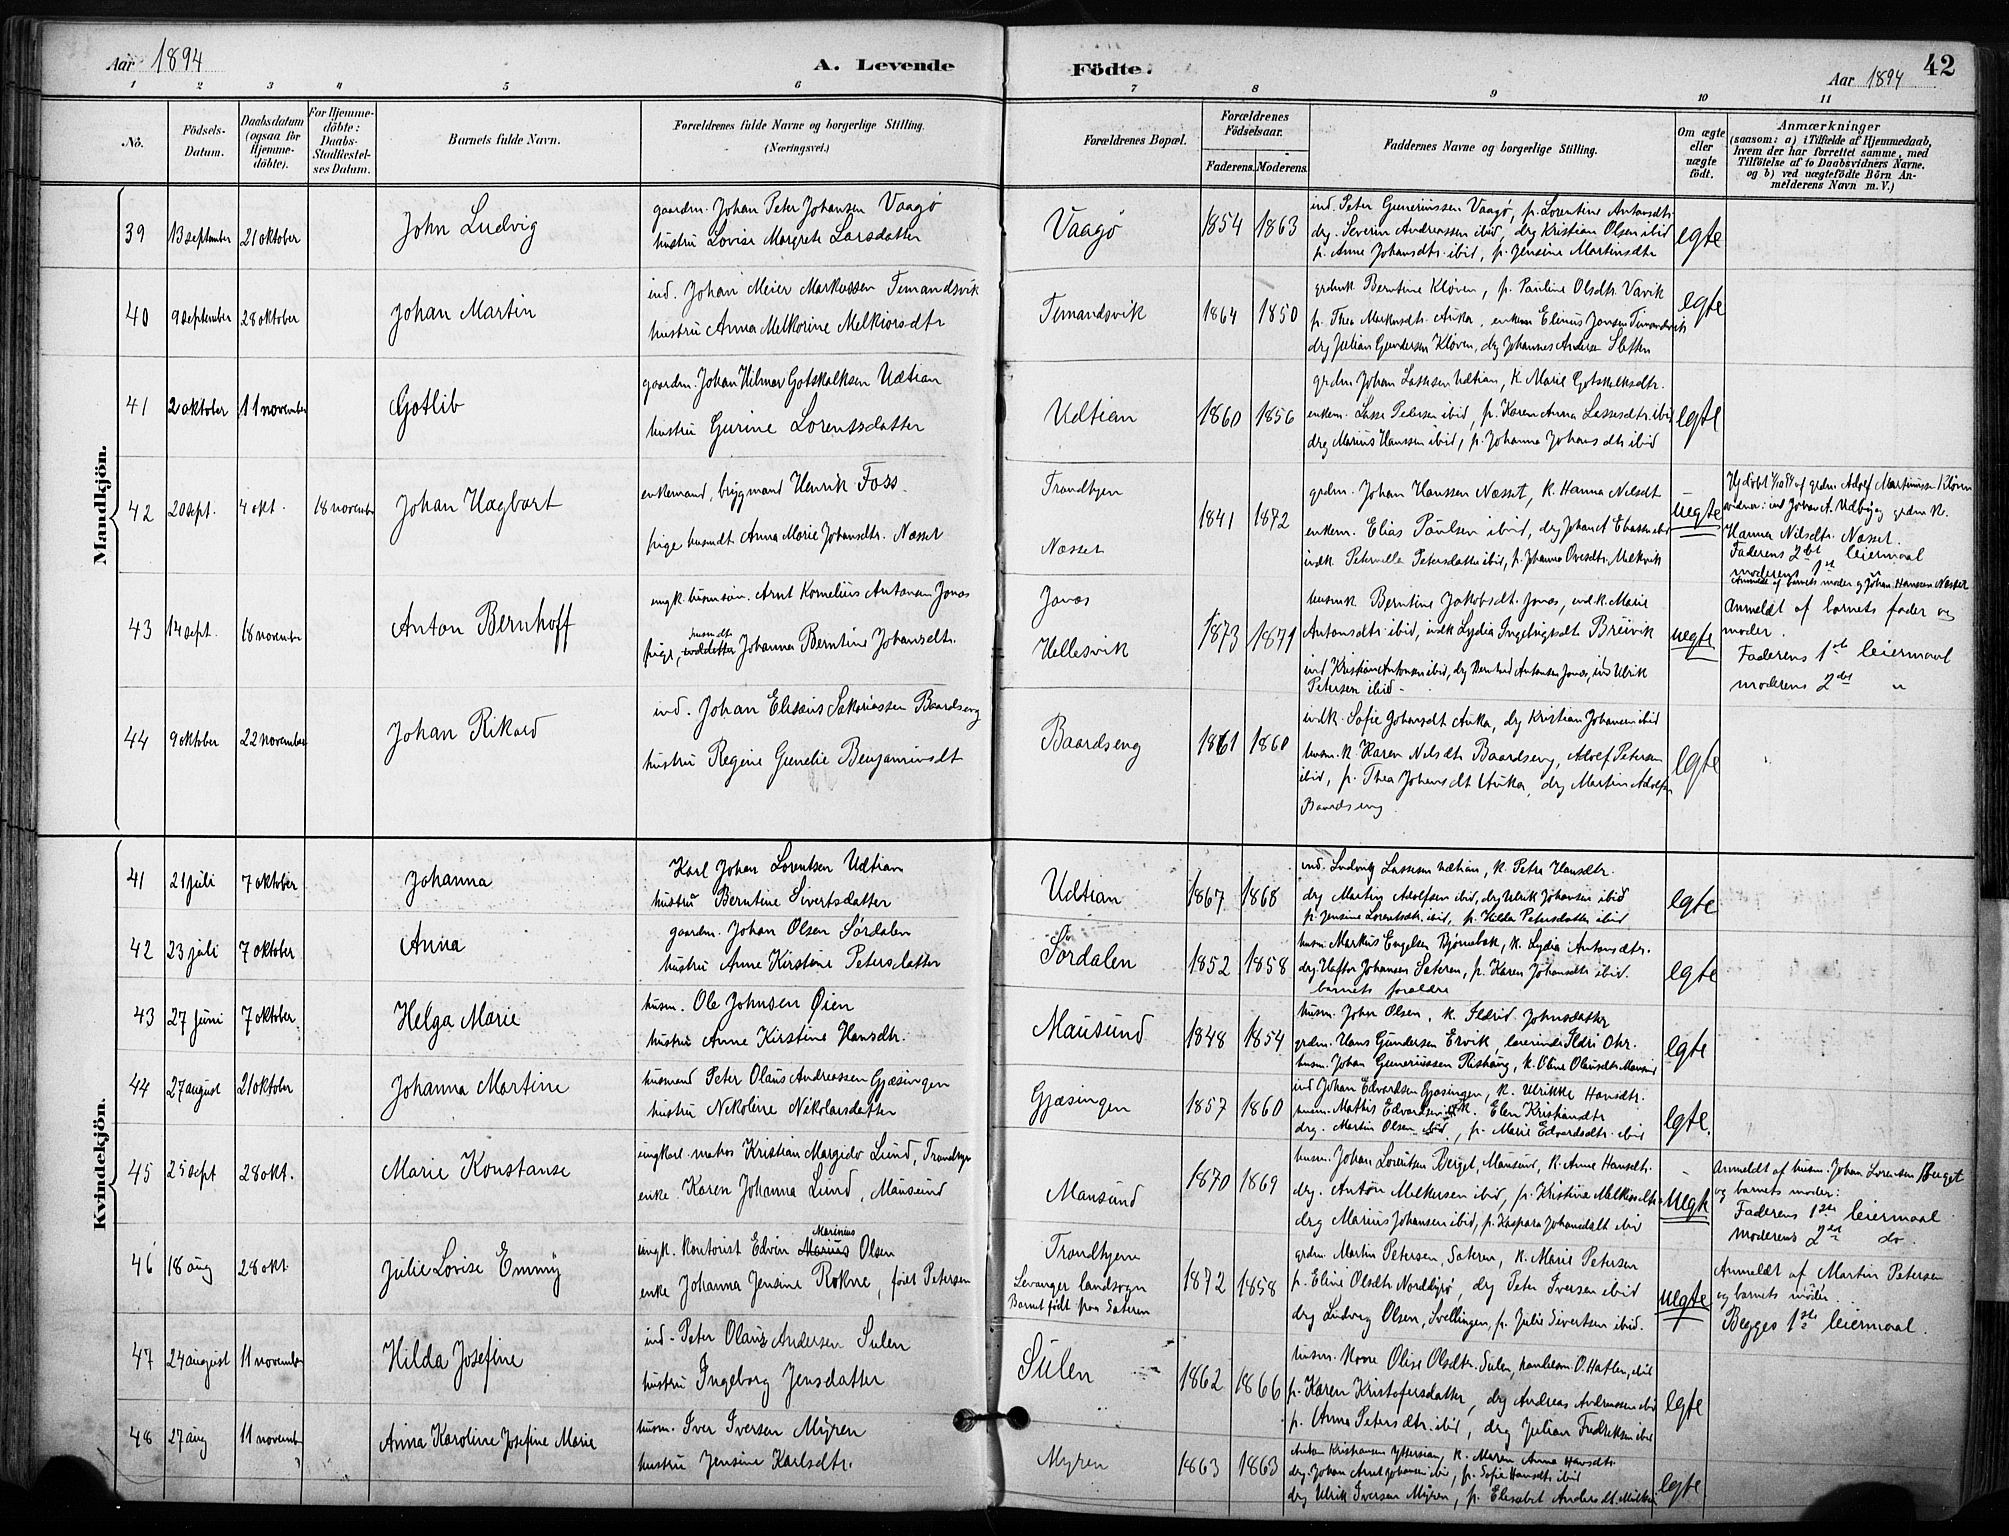 Aar 1894
A. Levende
Födte.
Aar 1894
42
1 2 3 4 5 6 7 8 9 10 11
No.
Födsels-Datum.
Daabsdatum (ogsaa for Hjemme-döbte).
For Hjemme-döbte: Daabs-Stadfæstel-ses Datum.
Barnets fulde Navn.
Forældrenes fulde Navne og borgerlige Stilling.
(Næringsvei.)
Forældrenes Bopæl.
Forældrenes Födselsaar.
Faderens. Moderens.
Faddernes Navne og borgerlige Stilling.
Om ægte eller uægte födt.
Anmærkninger
(saasom: a) i Tilfælde af Hjemmedaab, hvem der har forrettet samme, med Tilföielse af to Daabsvidners Navne. og b) ved uægtefödte Börn An-melderens Navn m. V.)
Mandkjön.
39 13 september 21 oktober John Ludvig
gaardm. Johan Peter Johansen Vaagø
hustru Lovise Margrete Larsdatter
Vaagø 1854 1863
ind. Peter Guneriussen Vaagø, p. Lorentine Antonsdtr
drg. Severin Andreassen ibid, drg Kristian Olsen ibid
p. Anne Johansdtr. ibid, p. Jensine Martinsdtr
egte
40 9 september 28 oktober Johan Martin
ind. Johan Meier Markussen Temandsvik
hustru Anna Melkorine Melkiorsdtr
Temandsvik 1864 1850
grdmk Berntine Kløven, p. Pauline Olsdtr. Vavik
p. Thea Markusdtr. Auka, enkem Elinus Jonsen Timandsvik
drg Julian Gundersen Kløven, drg Johannes Andersen Sletten
egte
41 2 oktober 11 november Gotlib
gaardm. Johan Hilmer Gotskalksen Udtian
hustru Gurine Lorentsdatter
Udtian 1860 1856
grdm Johan Lassesen Udtian, K. Marie Gotskalksdtr.
enkem. Lasse Petersen ibid, p. Karen Anna Lassesdtr. ibid
drg Marius Hanssen ibid, p. Johanna Johansdtr ibid
egte
42 20 sept. 4 okt. 18 november Johan Hagbart
enkemand, brygmand Henrik Foss.
pige husmdt Anna Marie Johansdtr. Næsset
Trondhjem
Næsset
1841 1872
grdm. Johan Hanssen Næsset, K. Hanna Nilsdt
enkem. Elias Paulsen ibid, drg Johan A. ibid
indk. Peternelle Petersdatter ibid, p. Johanna Ovesdtr. Melkvik
uegte
Hjdøbt 4/10 94 af grdm Adolf Martinussen Kløven
vidner: ind Johan A. Udbøy og grdm K.
Hanna Nilsdtr. Næsset.
Faderens 2det leiermaal
moderens 1st "
Anmeldt af barnets moder og Johan Hanssen Næsset
43 14 sept. 18 november Anton Bernhoff
ungk. husmsøn. Arnt Kornelius Antonsen Jonas
pige, husmdt Johanna Berntine Johansdtr.
Jonas
Hellesvik
1873 1871
husmk Berntine Jakobsdt. Jonas, indk. Marie
Antonsdtr. ibid, indk Lydia Breivik
ind Kristian Antonsen ibid, drg Bernhard Antonsen Jonas, ind Ulrik
Petersen ibid.
uegte
Anmeldt af barnets fader og
moder.
Faderens 1ste leiermaal
moderens 2det "
44 9 oktober 22 november Johan Rikard
ind. Johan Eliseus Sakariassen Baardseng
hustru Regine Gunelie Benjaminsdt
Baardseng 1861 1860
indk. Sofie Johansdt Auka, drg Kristian Johansen ibid
husm. K. Karen Nilsdt Baardseng, Adolf Petersen
ibid, p. Thea Johansdt Auka, drg Martin Adolfsen
Baardseng
egte
Kvindekjön.
41 21 juli 7 oktober Johanna
Karl Johan Lorentsen Udtian
hustru Berntine Sivertsdatter
Udtian 1867 1868
ind. Ludvig Lassesen Udtian, K. Petra Hansdtr.
drg Martin Adolfsen ibid, drg Ulrik Johansen ibid
p. Jensine Lorentsdtr. ibid, p. Hilda Petersdatter ibid
egte
42 23 juli 7 oktober Anna
gaardm. Johan Olsen Sørdalen
hustru Anne Kirstine Petersdatter
Sørdalen 1852 1858
husm. Markus Engelsen Bjørnebak, K. Lydia Antonsdtr.
drg. Haftor Johansen Sateren, p. Karen Johansdtr ibid.
barnets forældre
egte
43 27 juni 7 oktober Helga Marie
husm. Ole Johnsen Øien
hustru Anne Kirstine Hansdtr.
Mausund 1848 1854
husm. John Olsen, K. Ildrid Johnsdatter
grdm. Hans Gundersen Ervik, lærerinde Ildri Ohr.
husm. Johan Guneriussen Rishaug, K. Oline Olausdtr Mausund
egte
44 27 august 21 oktober Johanna Martine
husmand Peter Olaus Andreassen Gjæsingen
hustru Nekoline Nikolaisdatter
Gjæsingen 1857 1860
ind Johan Edvardsen Gjæsingen, K. Ulrikke Hansdtr.
husm. Mathis Edvardsen ibid K. Elen Kristiansdtr
drg. Martin Olsen ibid, p. Marie Edvardsdtr. ibid
egte.
45 25 sept 28 okt. Marie Konstanse
ungkarl. matros Kristian Margido Lund, Trondhjem
enke Karen Johanna Lund, Mausund
Mausund 1870 1869
husm. Johan Lorentsen Berget, Mausund, K. Anne Hansdtr.
drg. Anton Melkersen ibid, p. Kristine Melkiorsdtr
drg Marius Johansen ibid, p. Kaspara Johansdatt ibid
uegte
Anmeldt af husm. Johan Lorentsen Berget
og barnets moder:
Faderens 1ste leiermaal
moderens 2det do.
46 18 aug 28 okt. Julie Lovise Emmy
Marinius
ungk. kontorist Edvin Marius Olsen
enke Johanna Jensine Rokne, født Petersen
Trondhjem
Levanger landsogn
Barnet født paa Sateren
1872 1858
grdm. Martin Petersen, Sateren, K. Marie Petersen
p. Eline Olsdtr Norddyrø, drg Peter Iversen ibid
drg Ludvig Olsen, Svellingen, p. Julie Sivertsen ibid.
uegte
Anmeldt af Martin Petersen
og barnets moder.
Begges 1ste leiermaal.
47 24 august 11 november Hilda Josefine
ind. Peter Olaus Andersen Sulen
hustru Ingeborg Jensdatter
Sulen 1862 1866
husm. Kone Olise Olsdtr. Sulen, O. Hatlen, ibid
p. Karen Kristofersdatter, drg Andreas Andreassen ibid
p. Anna Petersdtr. ibid, drg Julian Fredriksen ibid
egte
48 27 aug 11 novemb Anna Karoline Josefine Marie
husm. Iver Iversen Myren
hustru Jensine Karlsdtr.
Myren 1863 1863
Anton Kristiansen Yttersian, K. Maren Anna Hansdtr.
drg. Johan Arnt Johansen ibid, p. Sofie Hansdtr ibid
drg Ulrik Iversen Myren, p. Elisabet Andersdt.
egte